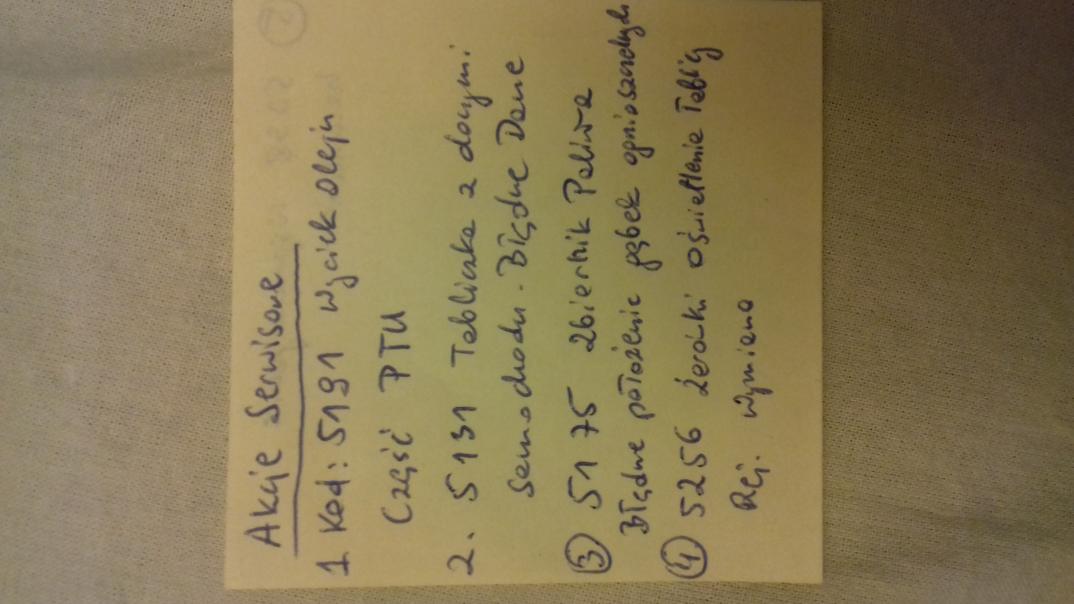 Akcje Serwisowe
1 Kod: 5191 Wyciek oleju
Część PTU
2. 5131 Tabliczka z danymi
Samochodu - Błędne Dane
3 5175 Zbiornik Paliwa
Błędne położenie gąbek
4 5256 żarówki Oświetlenie Tablicy
Rej. Wymiana